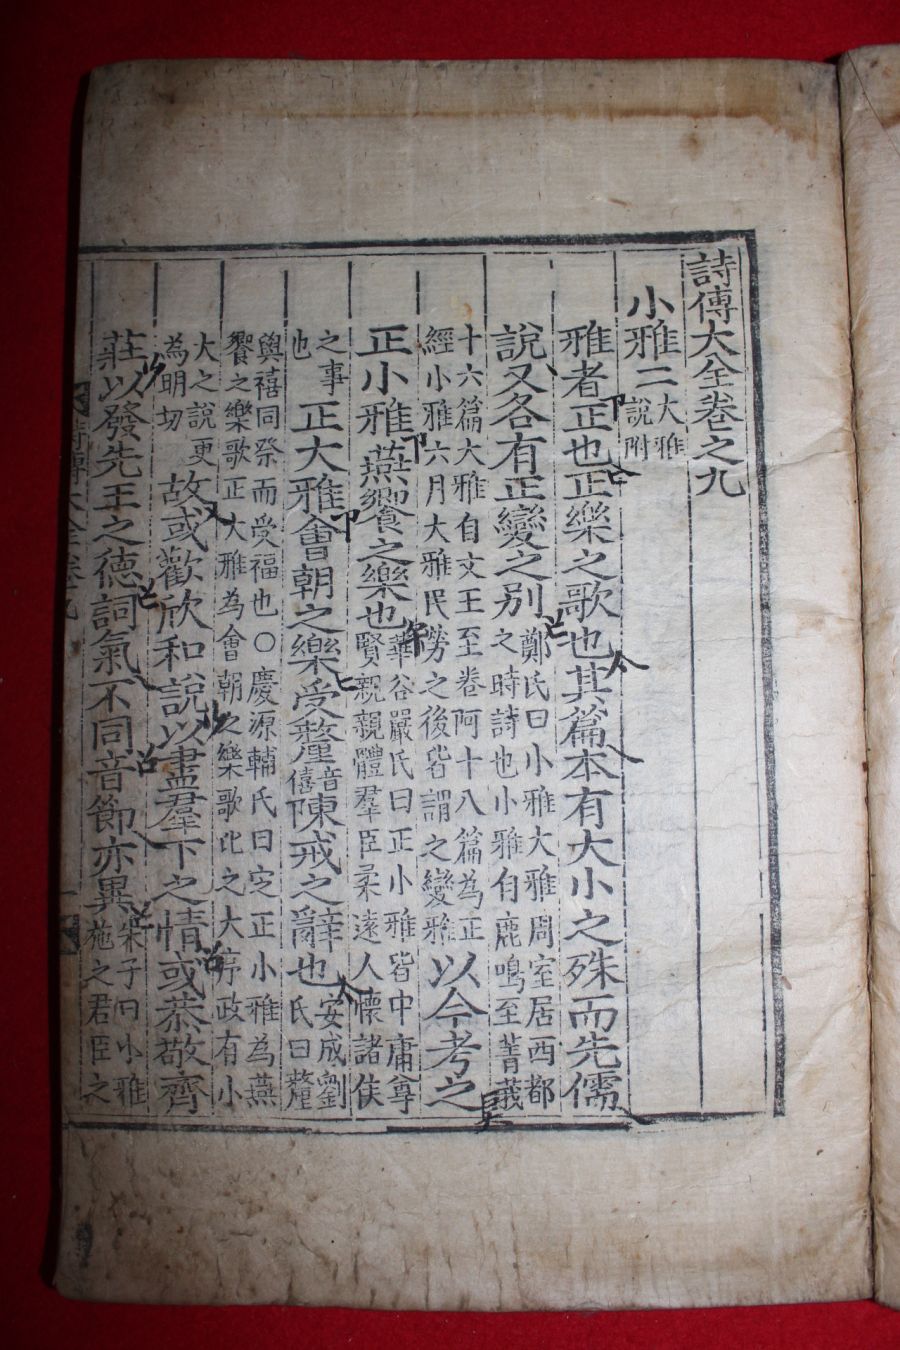 詩傳大全卷之九
小雅二 大雅說附
雅者正也正樂之歌也其篇本有大小之殊而先儒
說又各有正變之別 鄭氏曰小雅大雅周室居西都之時詩也小雅自鹿鳴至菁莪
十六篇大雅自文王至卷阿十八篇為正經小雅六月大雅民勞之後皆謂之變雅 以今考之
正小雅燕饗之樂也 華谷嚴氏曰正小雅皆中庸尊賢親親體羣臣柔遠人懷諸侯
之事也 正大雅會朝之樂受釐 音僖 陳戒之辭也 安成劉氏曰釐
與禧同祭而受福也○慶源輔氏曰定正小雅為燕饗之樂歌正大雅為會朝之樂歌比之大序政有小
大之說更為明切 故或歡欣和說以盡羣下之情或恭敬齊
莊以發先王之德詞氣不同音節亦異 朱子曰小雅施之君臣之